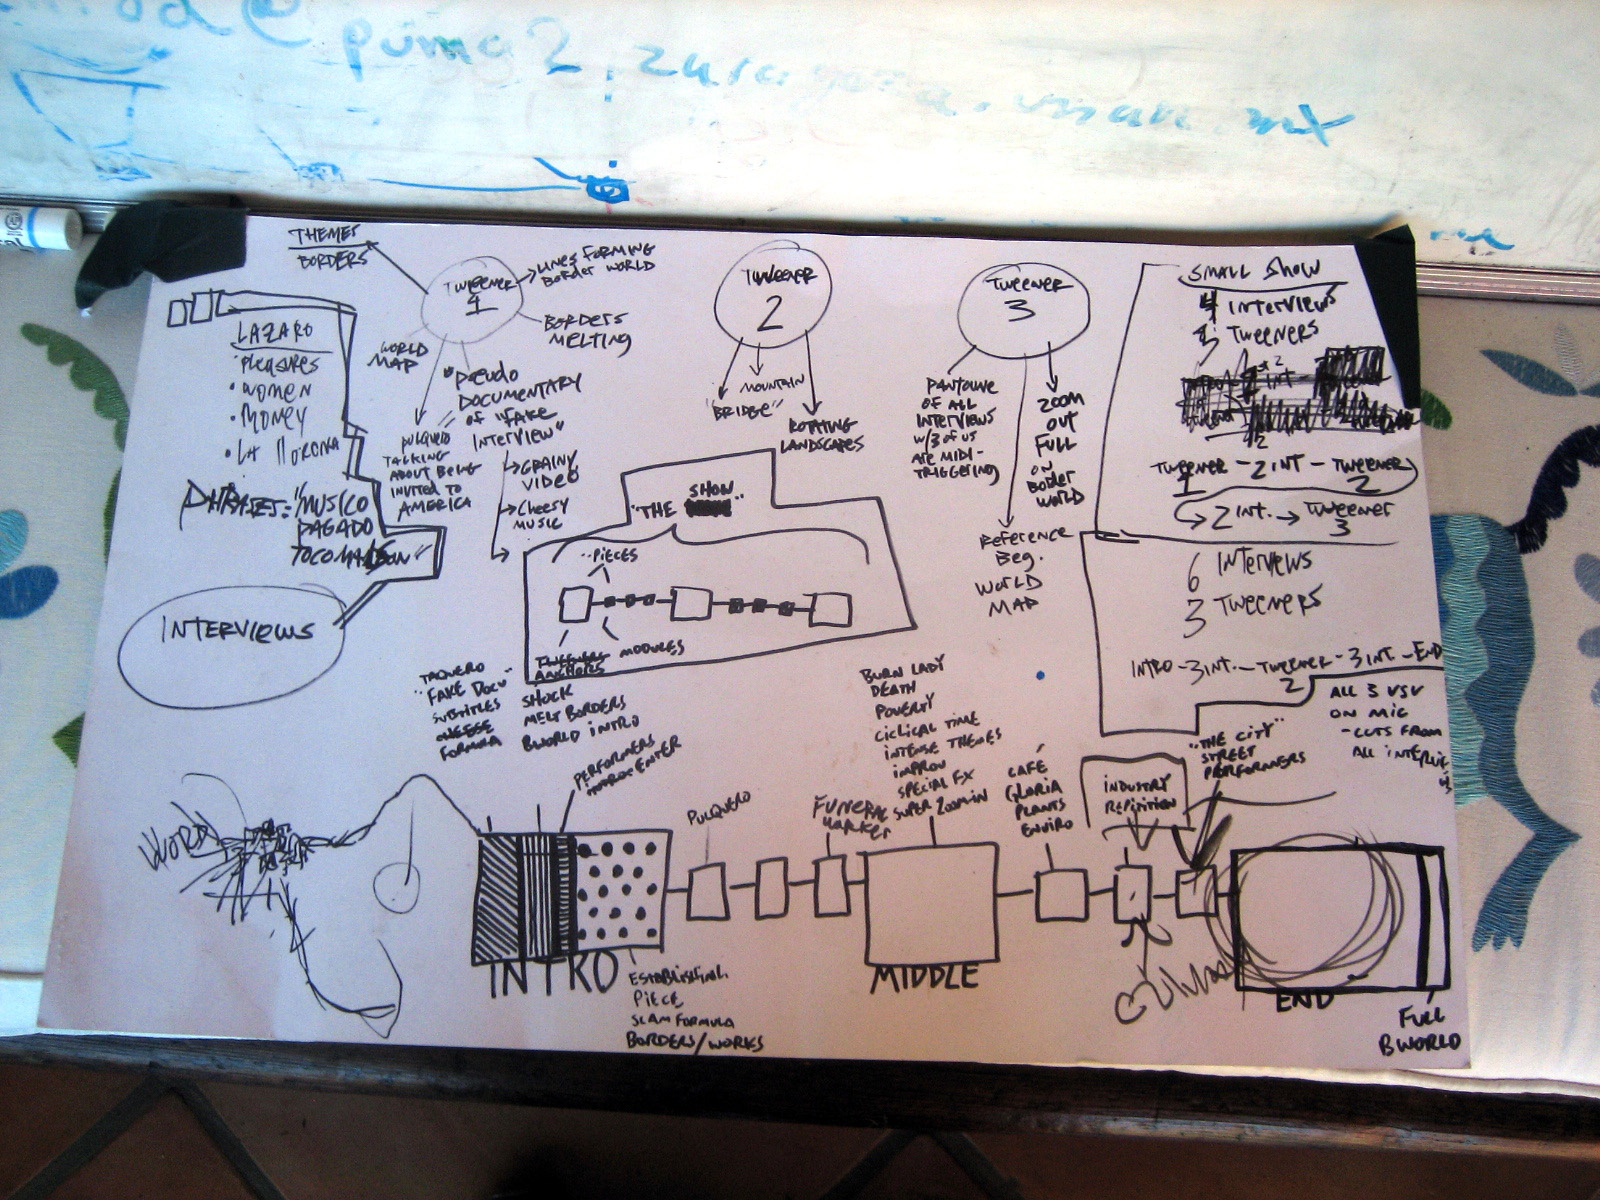 puma2.zaragoza.unam.mx
THEMES
BORDERS
TWEENER
1
LINES FORMING
BORDER WORLD
BORDERS
MELTING
WORLD
MAP
PULQUERO
TALKING
ABOUT BEING
INVITED TO
AMERICA
"PSEUDO
DOCUMENTARY
OF "FAKE
INTERVIEW"
GRAINY
VIDEO
CHEESY
MUSIC
LAZARO
PLEASURES
• WOMEN
• MONEY
• LA llorona
PHRASES: "MUSICO
PAGADO
TOCO MAL SON"
INTERVIEWS
TWEENER
2
"BRIDGE"
MOUNTAIN
ROTATING
LANDSCAPES
TWEENER
3
PANTOUNE
OF ALL
INTERVIEWS
W/3 OF US
ARE MIDI-
TRIGGERING
REFERENCE
BEG.
WORLD
MAP
ZOOM
OUT
FULL
ON
BORDER
WORLD
SMALL SHOW
4 INTERVIEWS
3 TWEENERS
TWEENER 1 - 2 INT - TWEENER 2
2 INT. → TWEENER 3
6 INTERVIEWS
3 TWEENERS
INTRO - 3 INT. - TWEENER 2 - 3 INT - END
ALL 3 VSV
ON MIC
- CUTS FROM
ALL INTERVIEWS
"THE SHOW"
PIECES
TWEENERS
ANCHORS
MODULES
TAQUERO
"FAKE DOCU"
SUBTITLES
CHEESE
FORMULA
SHOCK
MELT BORDERS
BWORLD INTRO
PERFORMERS
ENTER
WORD
INTRO
ESTABLISHING
PIECE
SLAM FORMULA
BORDERS/WORKS
PULQUERO
FUNERAL
MARKER
BURN LADY
DEATH
POVERTY
CICLICAL TIME
INTENSE THEMES
IMPROV
SPECIAL FX
SUPER ZOOM IN
MIDDLE
CAFE
GLORIA
PLANTS
ENVIRO
INDUSTRY
REPITITION
"THE CITY"
STREET
PERFORMERS
END
FULL
BWORLD